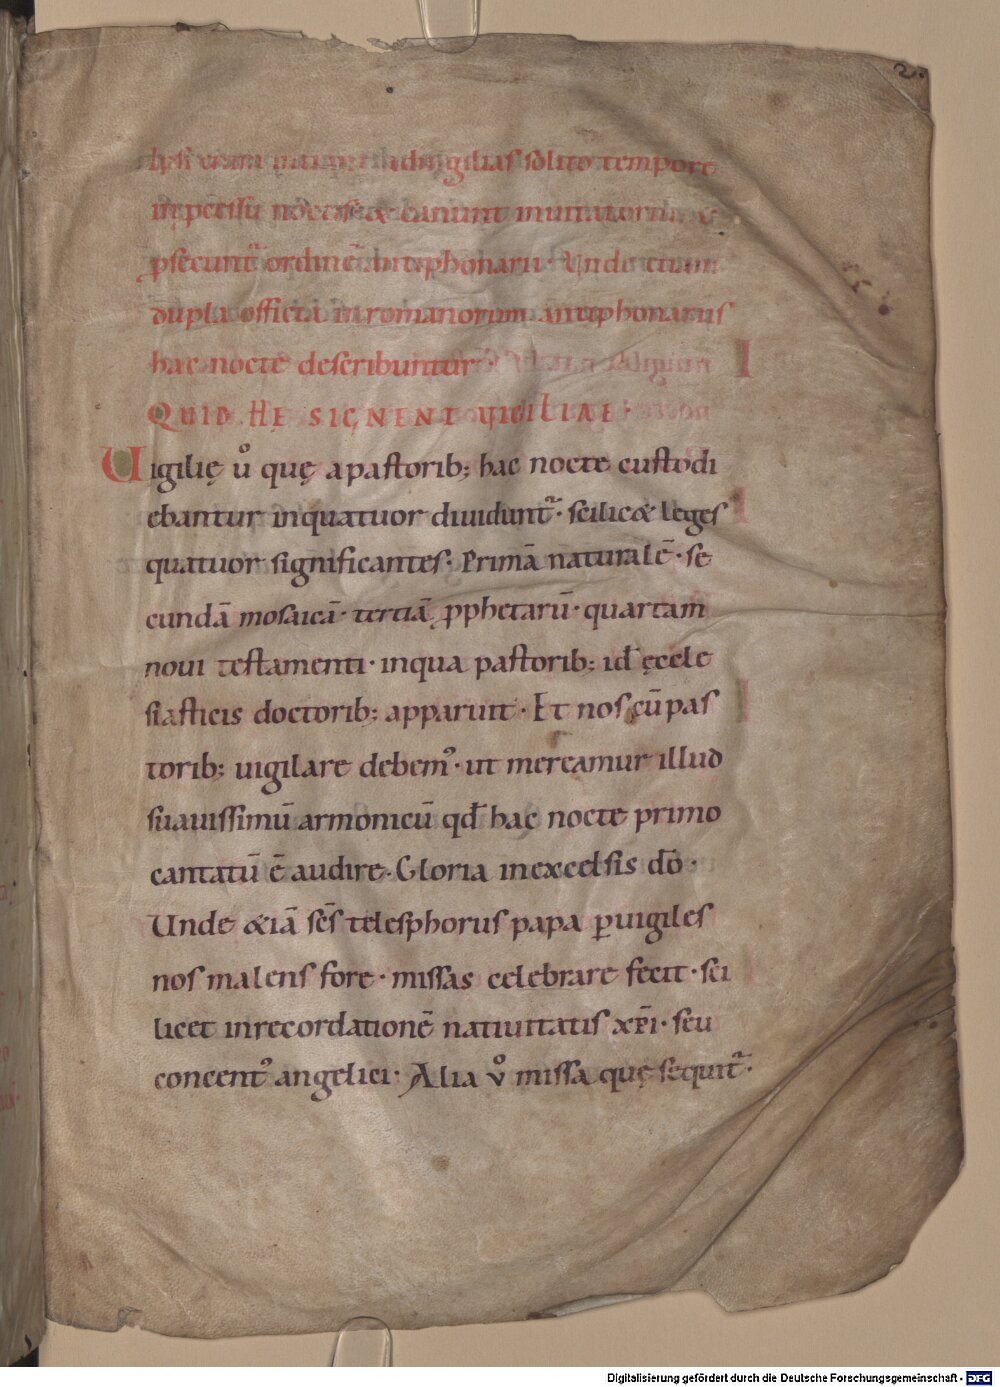 2.
Ipsi etiam intrant ad uigilias solito tempore
psecunt᷑ ordinē antephonarii · Vnde etiam
dupla officia in romanorum antephonariis
hac nocte describuntur ·
QUID HĘ SIGNENT VIGILIAE ·
Uigilię ů quę a pastorib; hac nocte custodi
ebantur inquatuor diuidunt᷑ · scilic& leges
quatuor significantes · Primā naturalē · se
cundā mosaicā · tertiā ꝓphetarū · quartam
noui testamenti · inqua pastorib; id̄ ęccle
siasticis doctorib; apparuit · Et nos cū pas
torib; uigilare debem᾿ · ut mereamur illud
suauissimū armonicū qd̄ hac nocte primo
cantatū ē audire · Gloria inexcelsis dō ·
Unde &iā sc̄s telesphorus papa ꝑuigiles
nos malens fore · missas celebrare fecit · sci
licet inrecordationē natiuitatis xp̄i · seu
concent᾿ angelici · Alia v̊ missa quę sequit᷑ ·
Digitalisierung gefördert durch die Deutsche Forschungsgemeinschaft - DFG